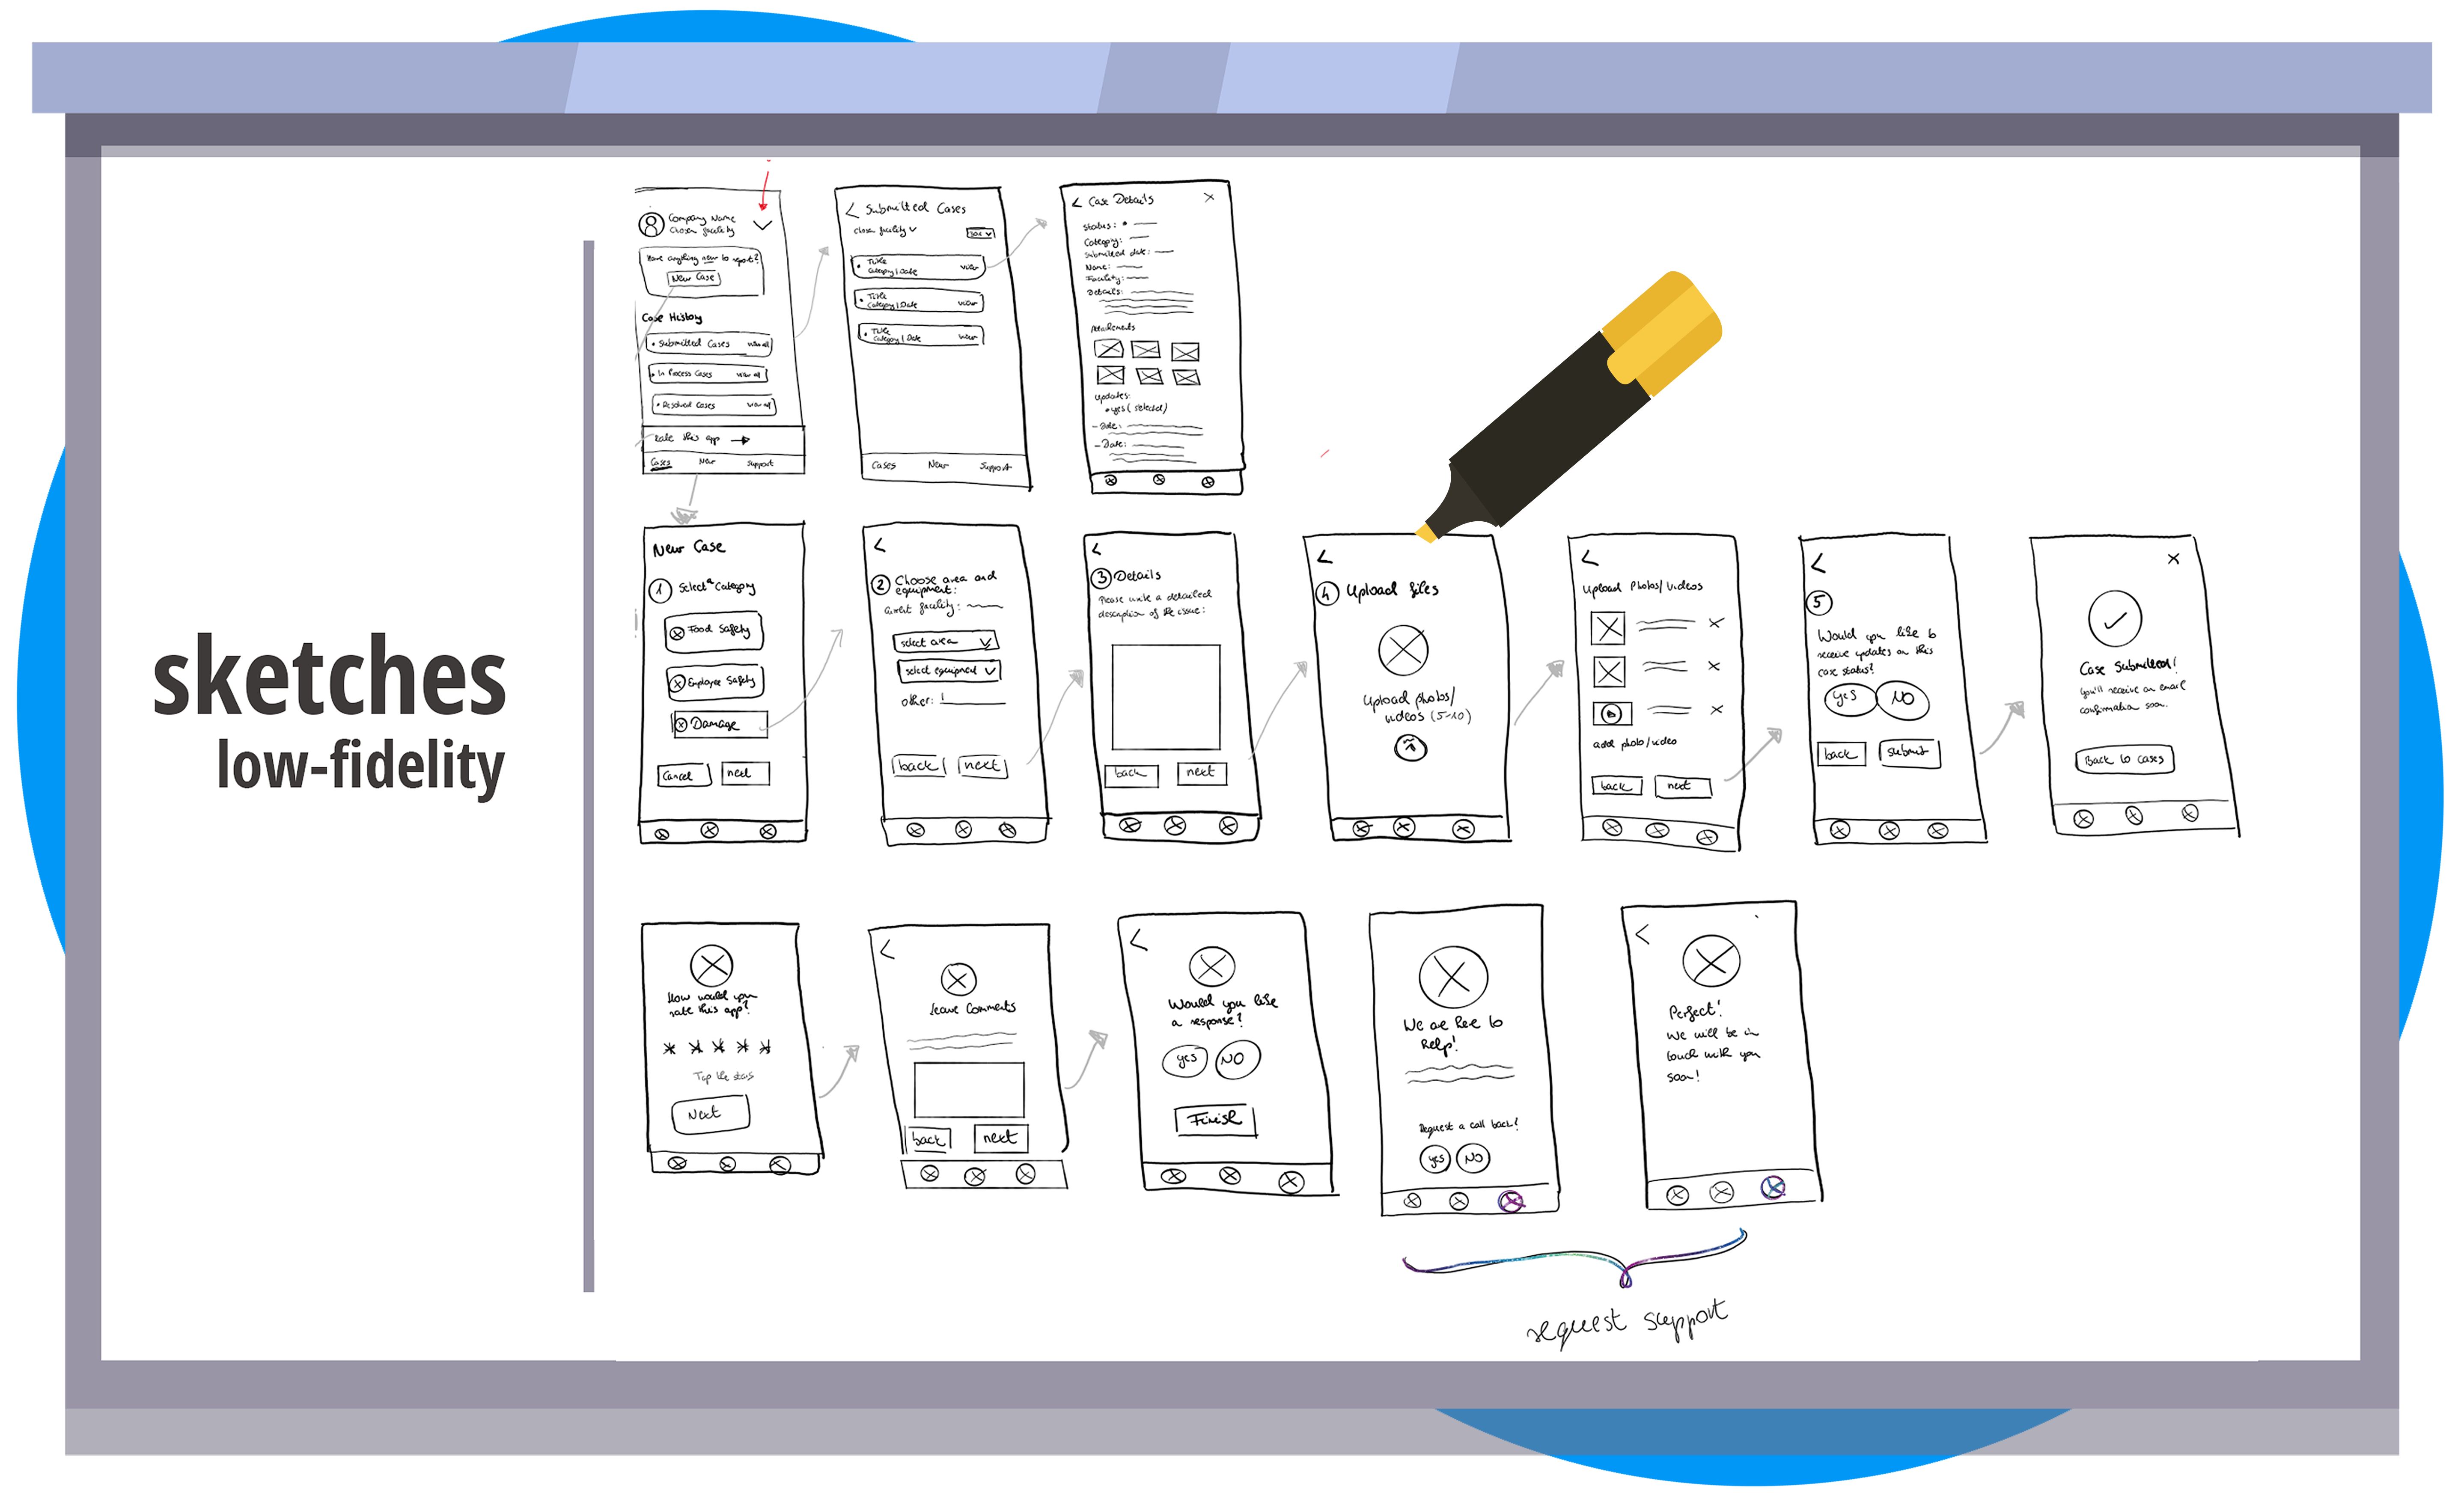 sketches
low-fidelity
Company Name
Chosen facility
Have anything new to report?
New Case
Case History
Submitted Cases view all
In Process Cases view all
Resolved Cases view all
Rate this app
Cases New Support
Submitted Cases
Chosen facility
Title
Category | Date view
Title
Category | Date view
Title
Category | Date view
Cases New Support
Case Details
Status:
Category:
Submitted date:
Name:
Facility:
Details:
Attachments
Updates:
yes (selected)
- Date:
- Date:
New Case
1 Select a Category
Food Safety
Employee Safety
Damage
Cancel next
2 Choose area and
equipment:
Current facility:
select area
select equipment
other:
back next
3 Details
Please write a detailed
description of the issue:
back next
4 Upload files
Upload photos/
videos (5-10)
Upload Photos/Videos
add photo/video
back next
5
Would you like to
receive updates on this
case status?
yes NO
back submit
Case Submitted!
You'll receive an email
confirmation soon.
Back to cases
How would you
rate this app?
Tap the stars
Next
Leave Comments
back next
Would you like
a response?
yes NO
Finish
We are here to
help!
Request a call back?
yes NO
Perfect!
We will be in
touch with you
soon!
request support